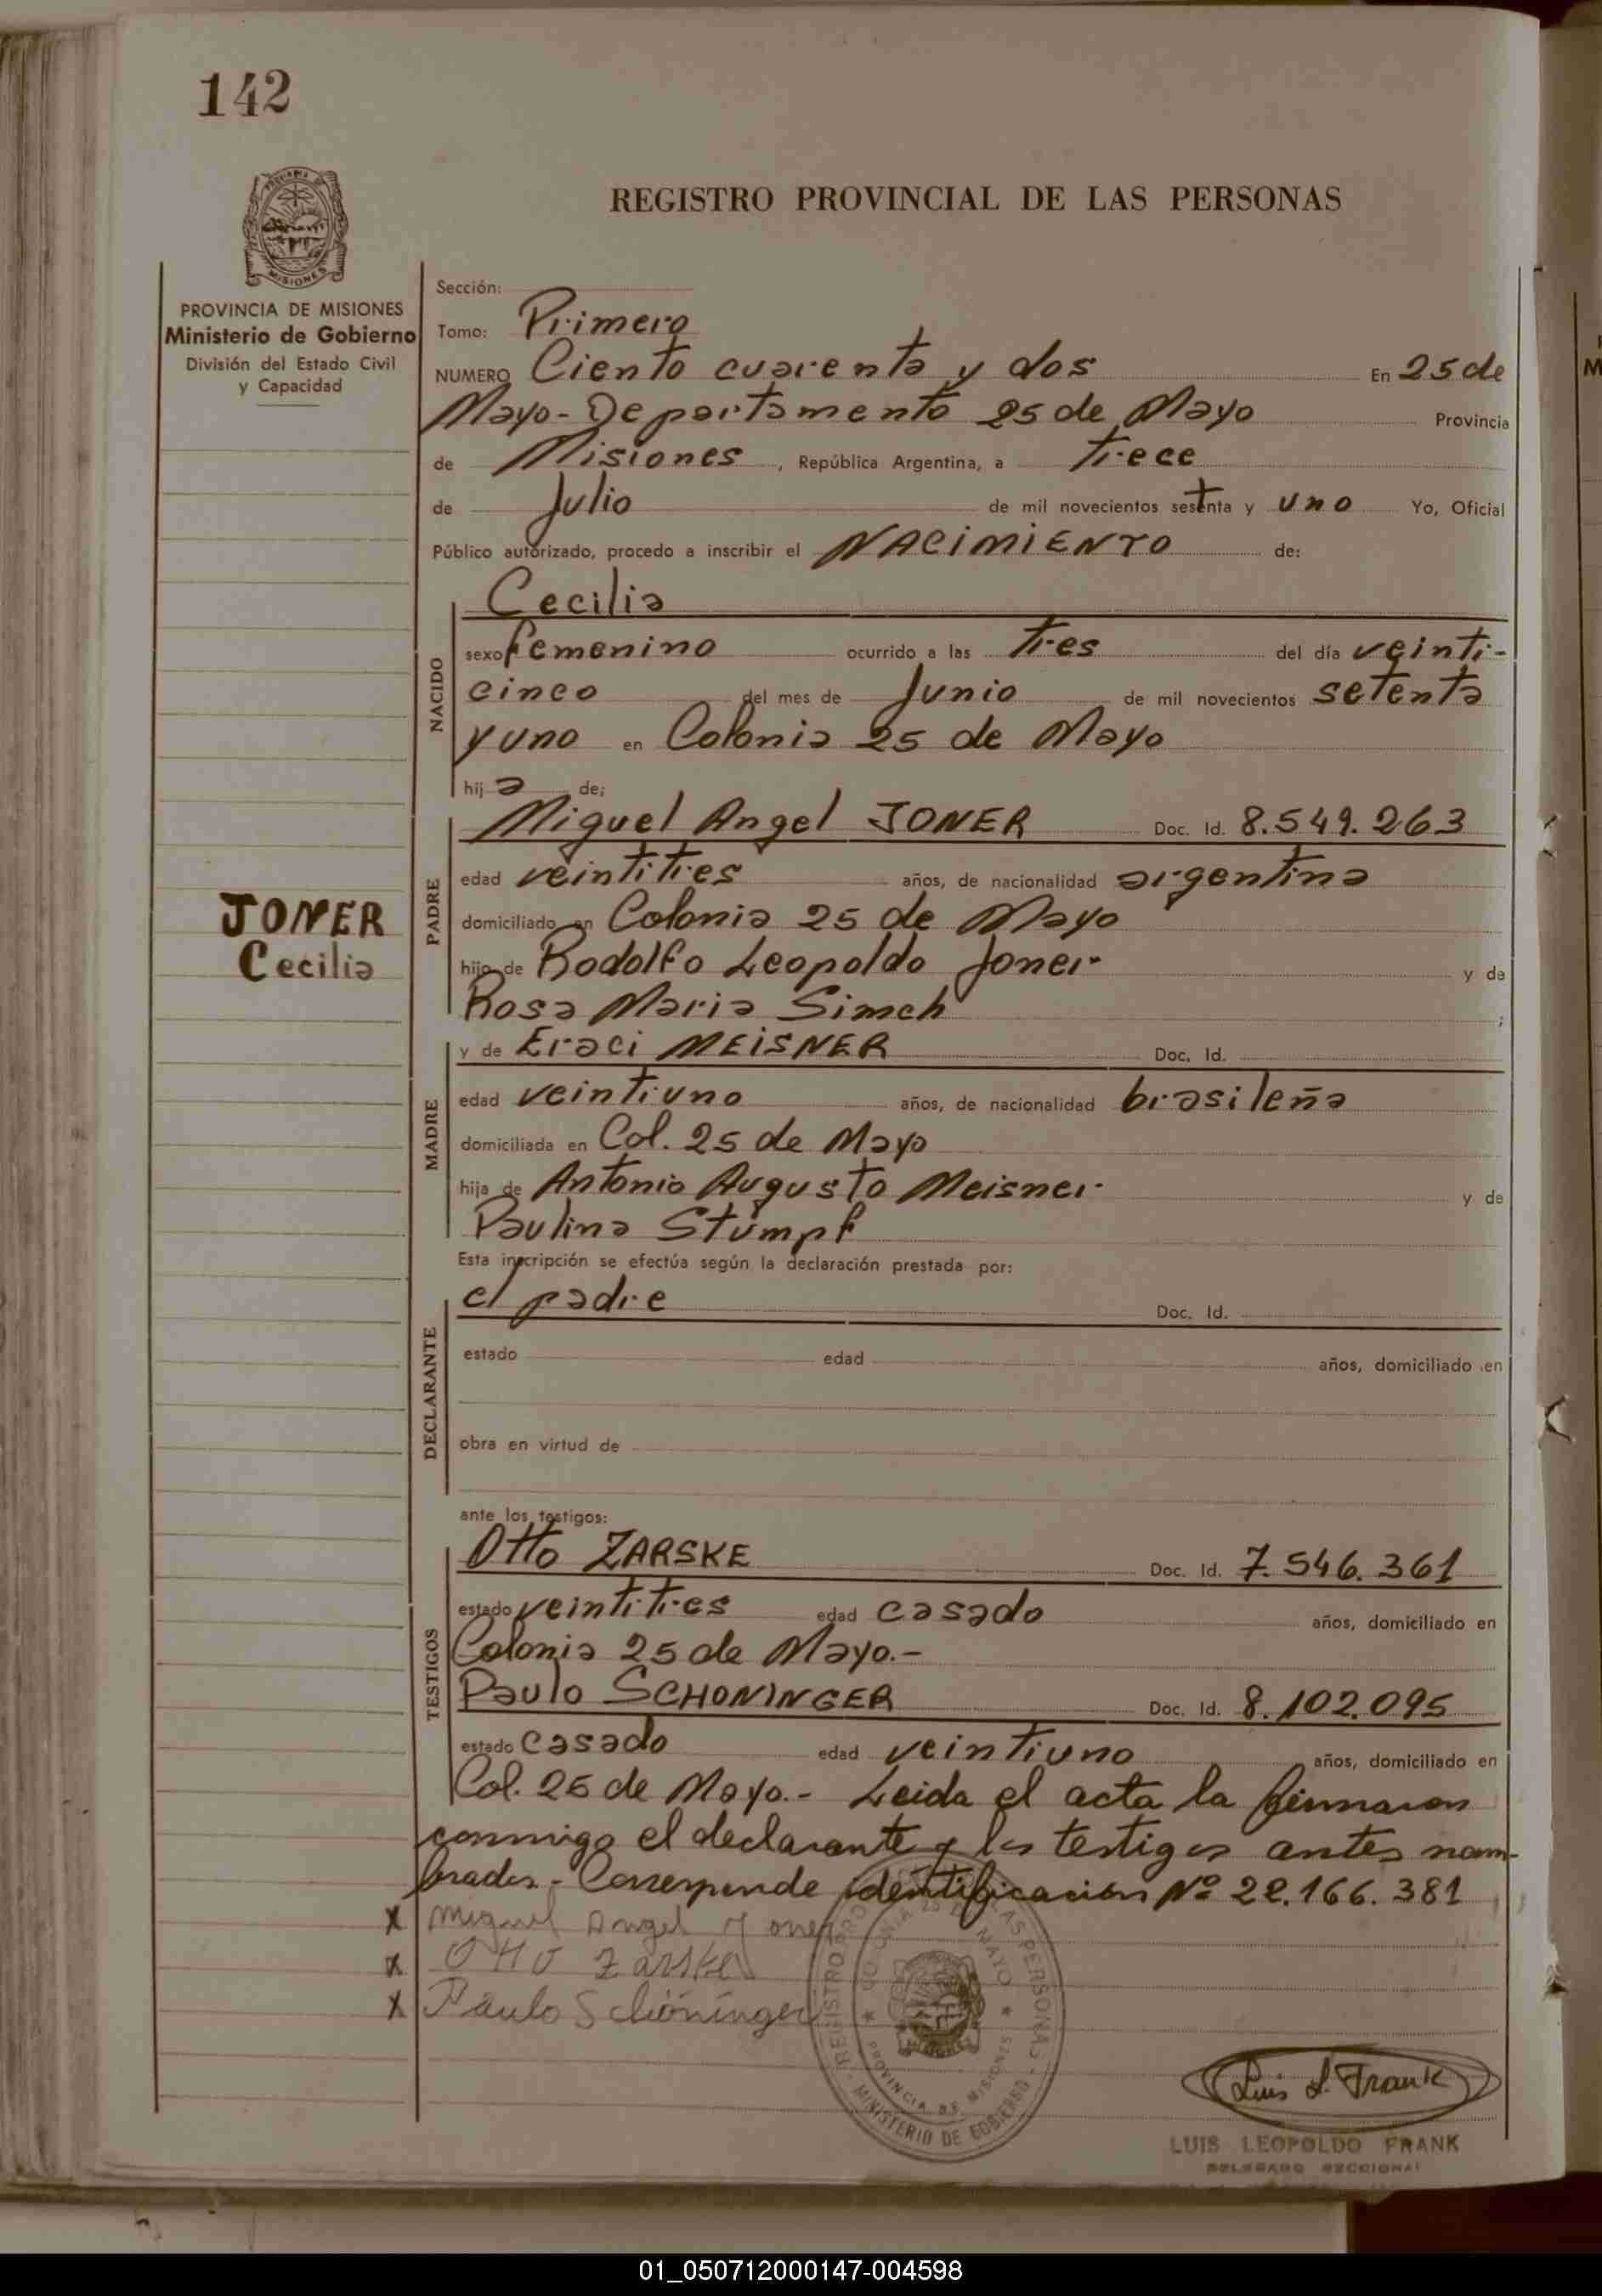 142
REGISTRO PROVINCIAL DE LAS PERSONAS
MISIONES
PROVINCIA DE MISIONES
Ministerio de Gobierno
División del Estado Civil
y Capacidad
Sección:
Tomo: Primero
NUMERO Ciento cuarenta y dos En 25 de
Mayo - Departamento 25 de Mayo Provincia
de Misiones, República Argentina, a trece
de Julio de mil novecientos setenta y uno Yo, Oficial
Público autorizado, procedo a inscribir el NACIMIENTO de:
NACIDO
Cecilia
sexo femenino ocurrido a las tres del día veinti-
cinco del mes de Junio de mil novecientos setenta
y uno en Colonia 25 de Mayo
hija de;
PADRE
Miguel Angel JONER Doc. Id. 8.549.263
edad veintitres años, de nacionalidad argentina
domiciliado en Colonia 25 de Mayo
JONER
Cecilia
hijo de Rodolfo Leopoldo Joner y de
Rosa Maria Simch ;
MADRE
y de Eraci MEISNER Doc. Id.
edad veintiuno años, de nacionalidad brasileña
domiciliada en Col. 25 de Mayo
hija de Antonio Augusto Meisner y de
Paulina Stumpf
Esta inscripción se efectúa según la declaración prestada por:
DECLARANTE
el padre Doc. Id.
estado edad años, domiciliado en
obra en virtud de
ante los testigos:
TESTIGOS
Otto ZARSKE Doc. Id. 7.546.361
estado veintitres edad casado años, domiciliado en
Colonia 25 de Mayo.-
Paulo SCHONINGER Doc. Id. 8.102.095
estado casado edad veintiuno años, domiciliado en
Col. 25 de Mayo.- Leida el acta la firmaron
conmigo el declarante y los testigos antes nom-
brados.- Corresponde identificación Nº 22.166.381
x Miguel Angel Joner
x Otto Zarske
x Paulo Schöninger
REGISTRO PROVINCIAL DE LAS PERSONAS - MINISTERIO DE GOBIERNO -
COLONIA 25 DE MAYO
PROVINCIA DE MISIONES
Luis L. Frank
LUIS LEOPOLDO FRANK
DELEGADO SECCIONAL
01_050712000147-004598